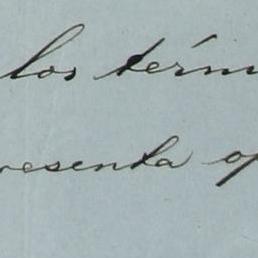 los térm
resenta op